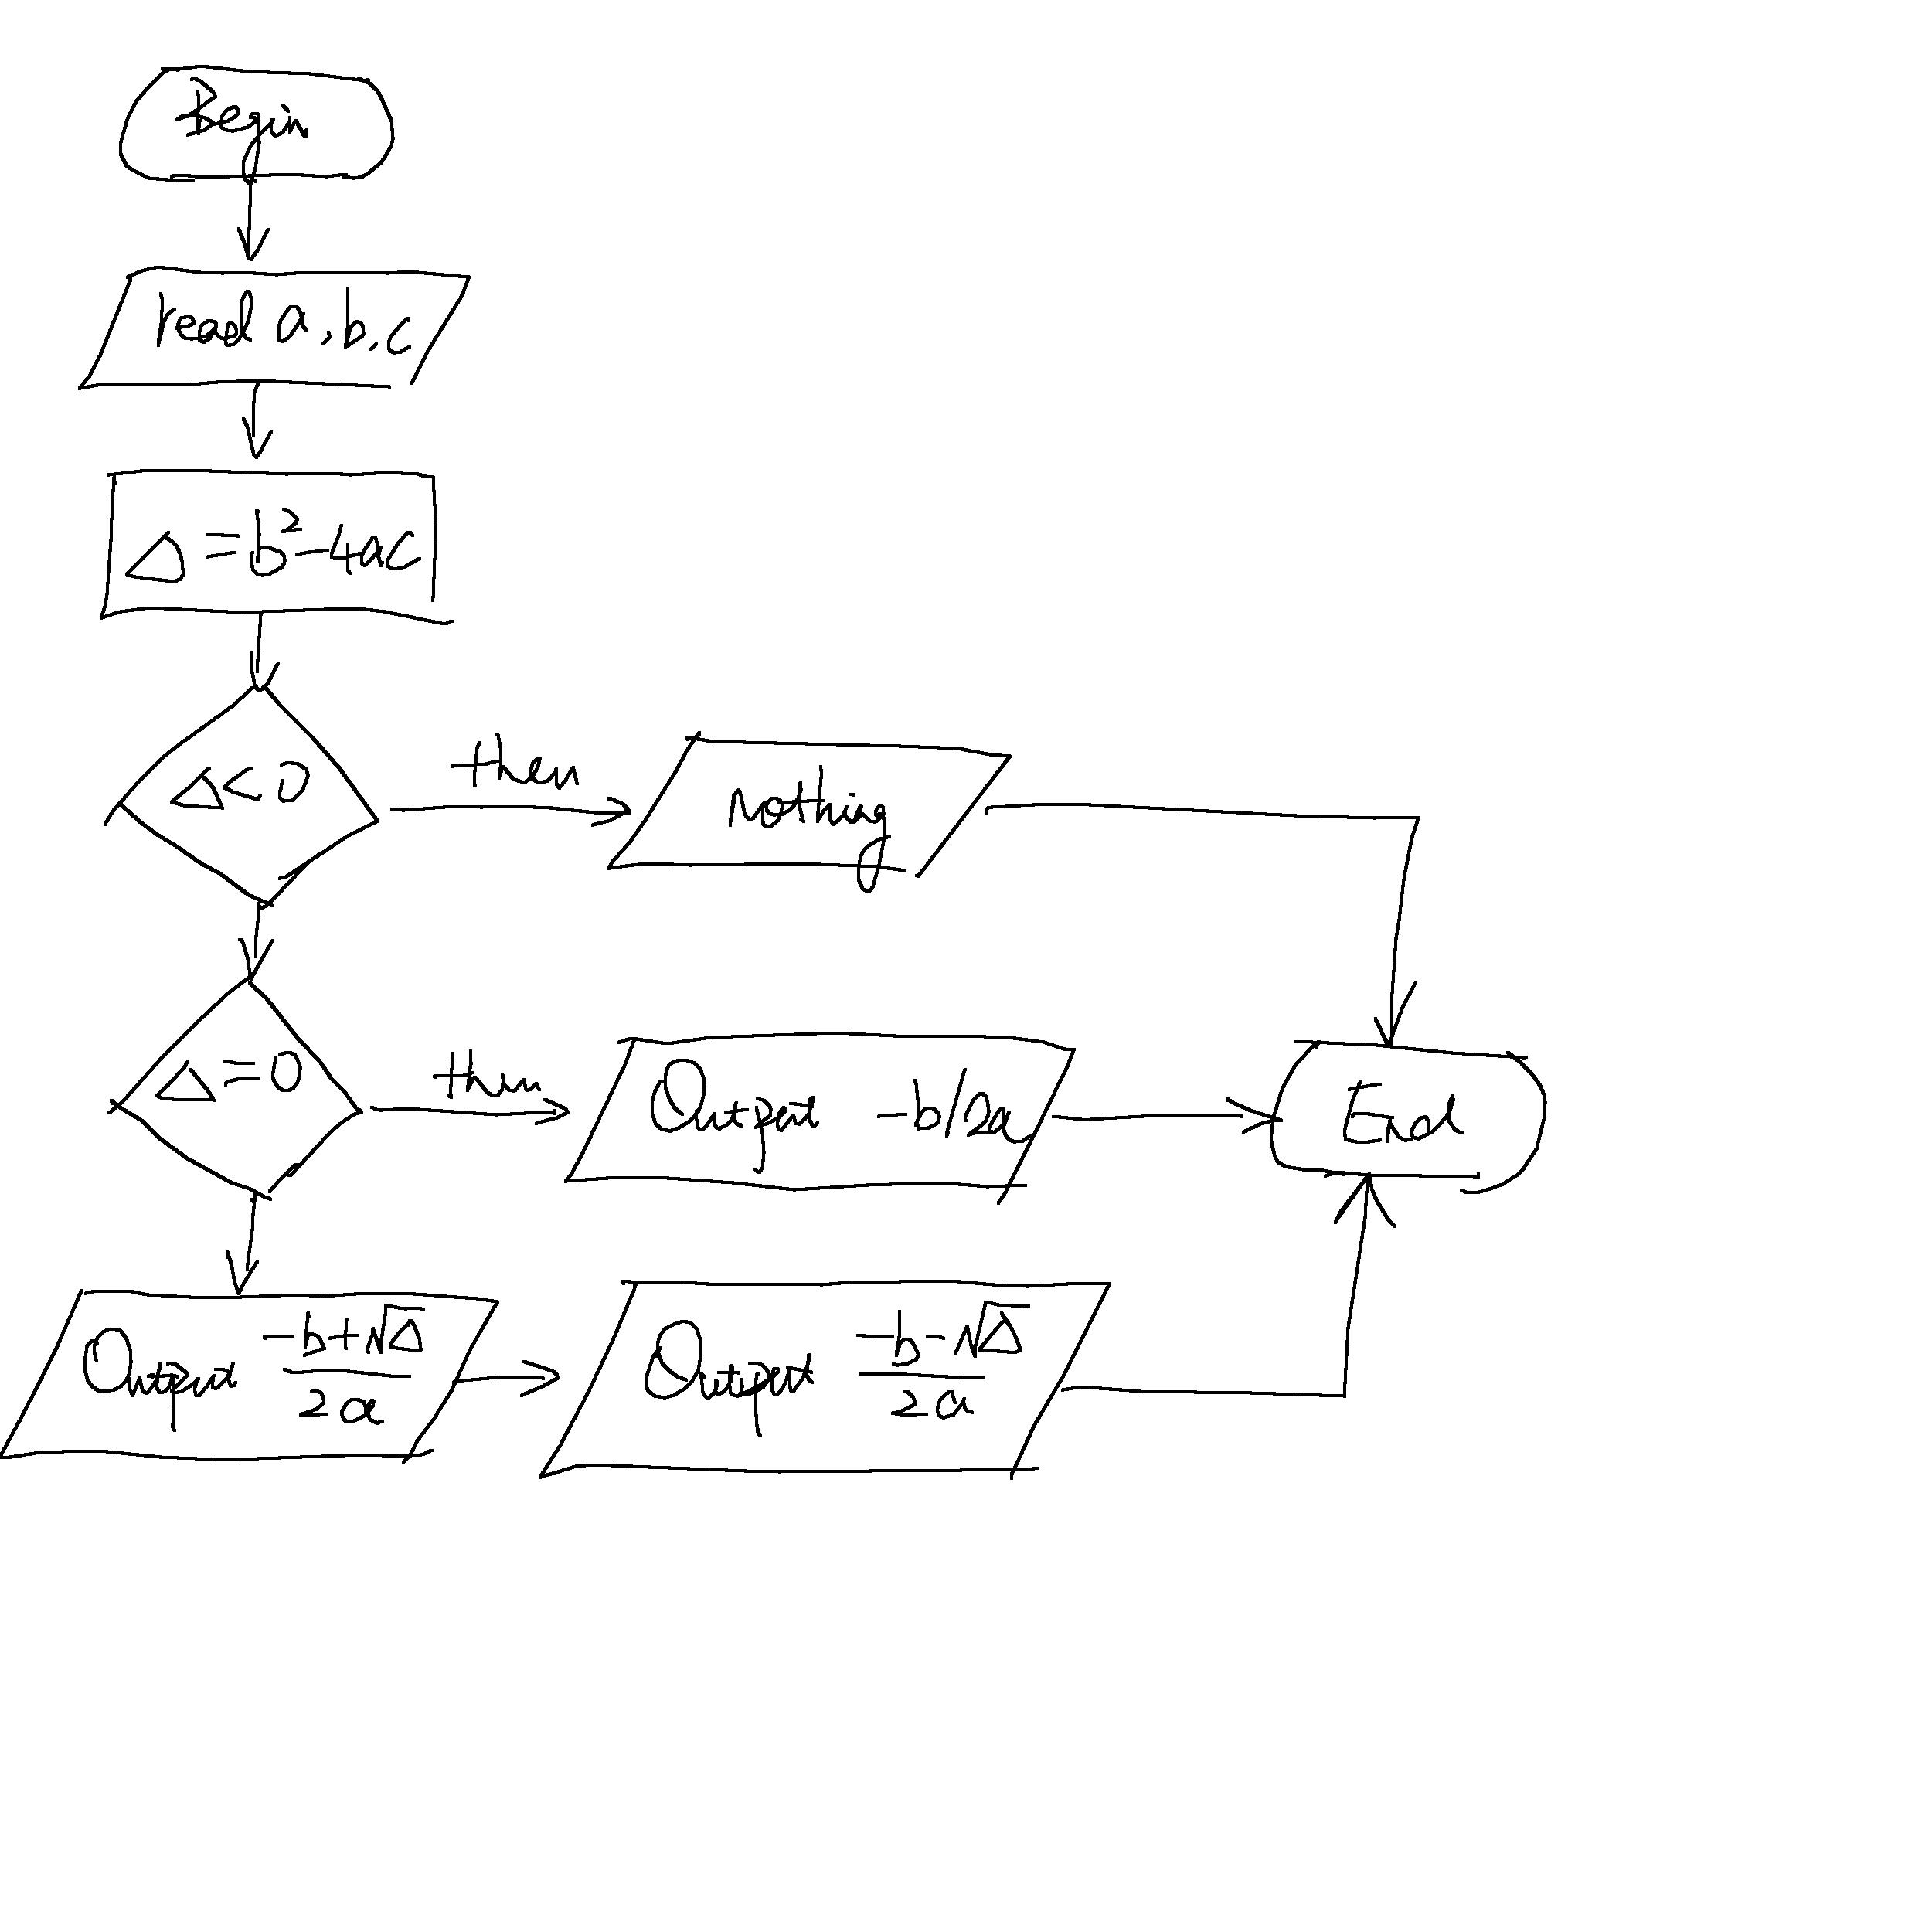 Begin
read a, b, c
Δ = b² - 4ac
Δ < 0
then
Nothing
Δ = 0
then
Output -b/2a
End
Output (-b+√Δ)/2a
Output (-b-√Δ)/2a